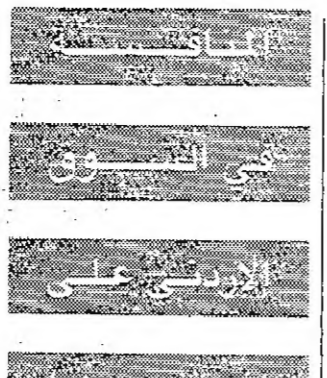 المنافسة
في السوق
الاردني على